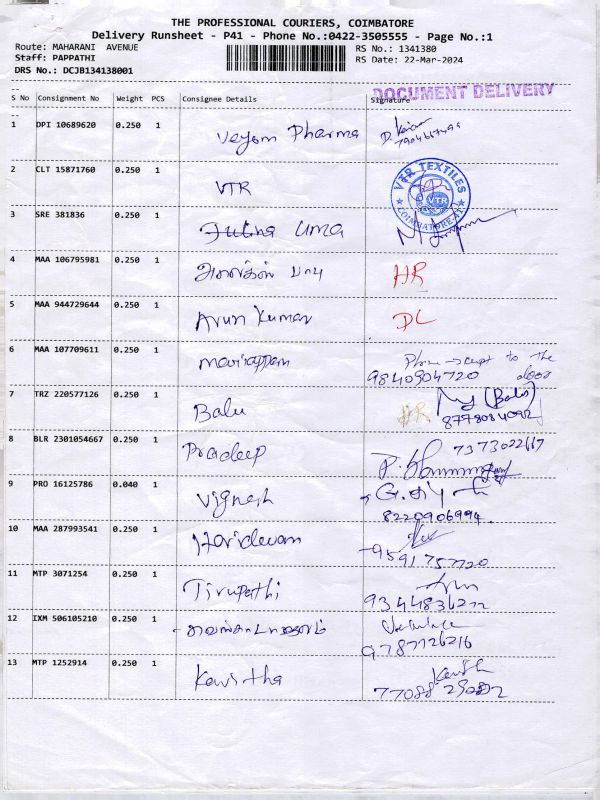 THE PROFESSIONAL COURIERS, COIMBATORE
Delivery Runsheet - P41 - Phone No.:0422-3505555 - Page No.:1
Route: MAHARANI AVENUE
RS No.: 1341380
Staff: PAPPATHI
RS Date: 22-Mar-2024
DRS No.: DCJB134138001
DOCUMENT DELIVERY
S No Consignment No Weight PCS Consignee Details Signature
1 DPI 10689620 0.250 1 Pharma
2 CLT 15871760 0.250 1 VTR
VTR TEXTILES
VTR
COIMBATORE
3 SRE 381836 0.250 1 Uma
4 MAA 106795981 0.250 1 HR
5 MAA 944729644 0.250 1 Arun Kumar DL
6 MAA 107709611 0.250 1 to the door
9840904720
7 TRZ 220577126 0.250 1 Balu HR (Balu)
8778084092
8 BLR 2301054667 0.250 1 Pradeep 7373022667
9 PRO 16125786 0.040 1 Vignesh
8220906994
10 MAA 287993541 0.250 1 Haridevan
9591757720
11 MTP 3071254 0.250 1 Tirupathi
12 IXM 506105210 0.250 1
9787126216
13 MTP 1252914 0.250 1 Kavitha